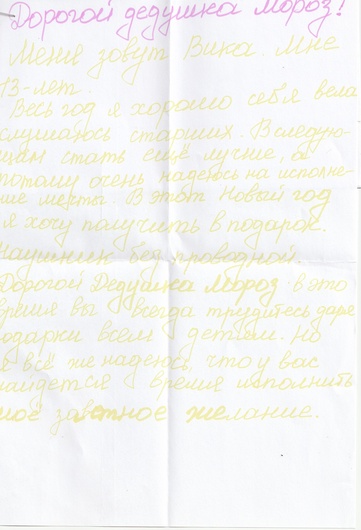 Дорогой дедушка Мороз!
Меня зовут Вика. Мне
13-лет.
Весь год я хорошо себя вела
слушаюсь старших. В следую-
щем стать ещё лучше, а
потому очень надеюсь на исполне-
ние мечты. В этот Новый год
я хочу получить в подарок.
Наушник беспроводной
Дорогой Дедушка Мороз в это
время вы всегда трудитесь даря
подарки всем детям. Но
я всё же надеюсь, что у вас
найдется время исполнить
моё заветное желание.